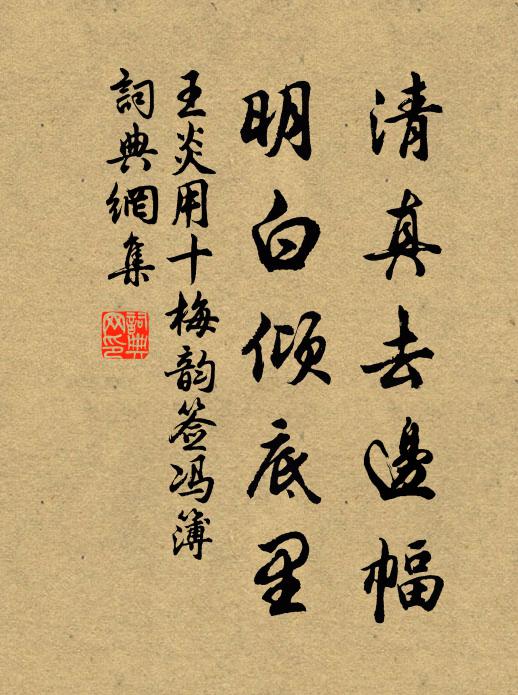 清真去邊幅
明白傾底里
王炎用十梅韵簽馮簿
詞典網集
詞典網印